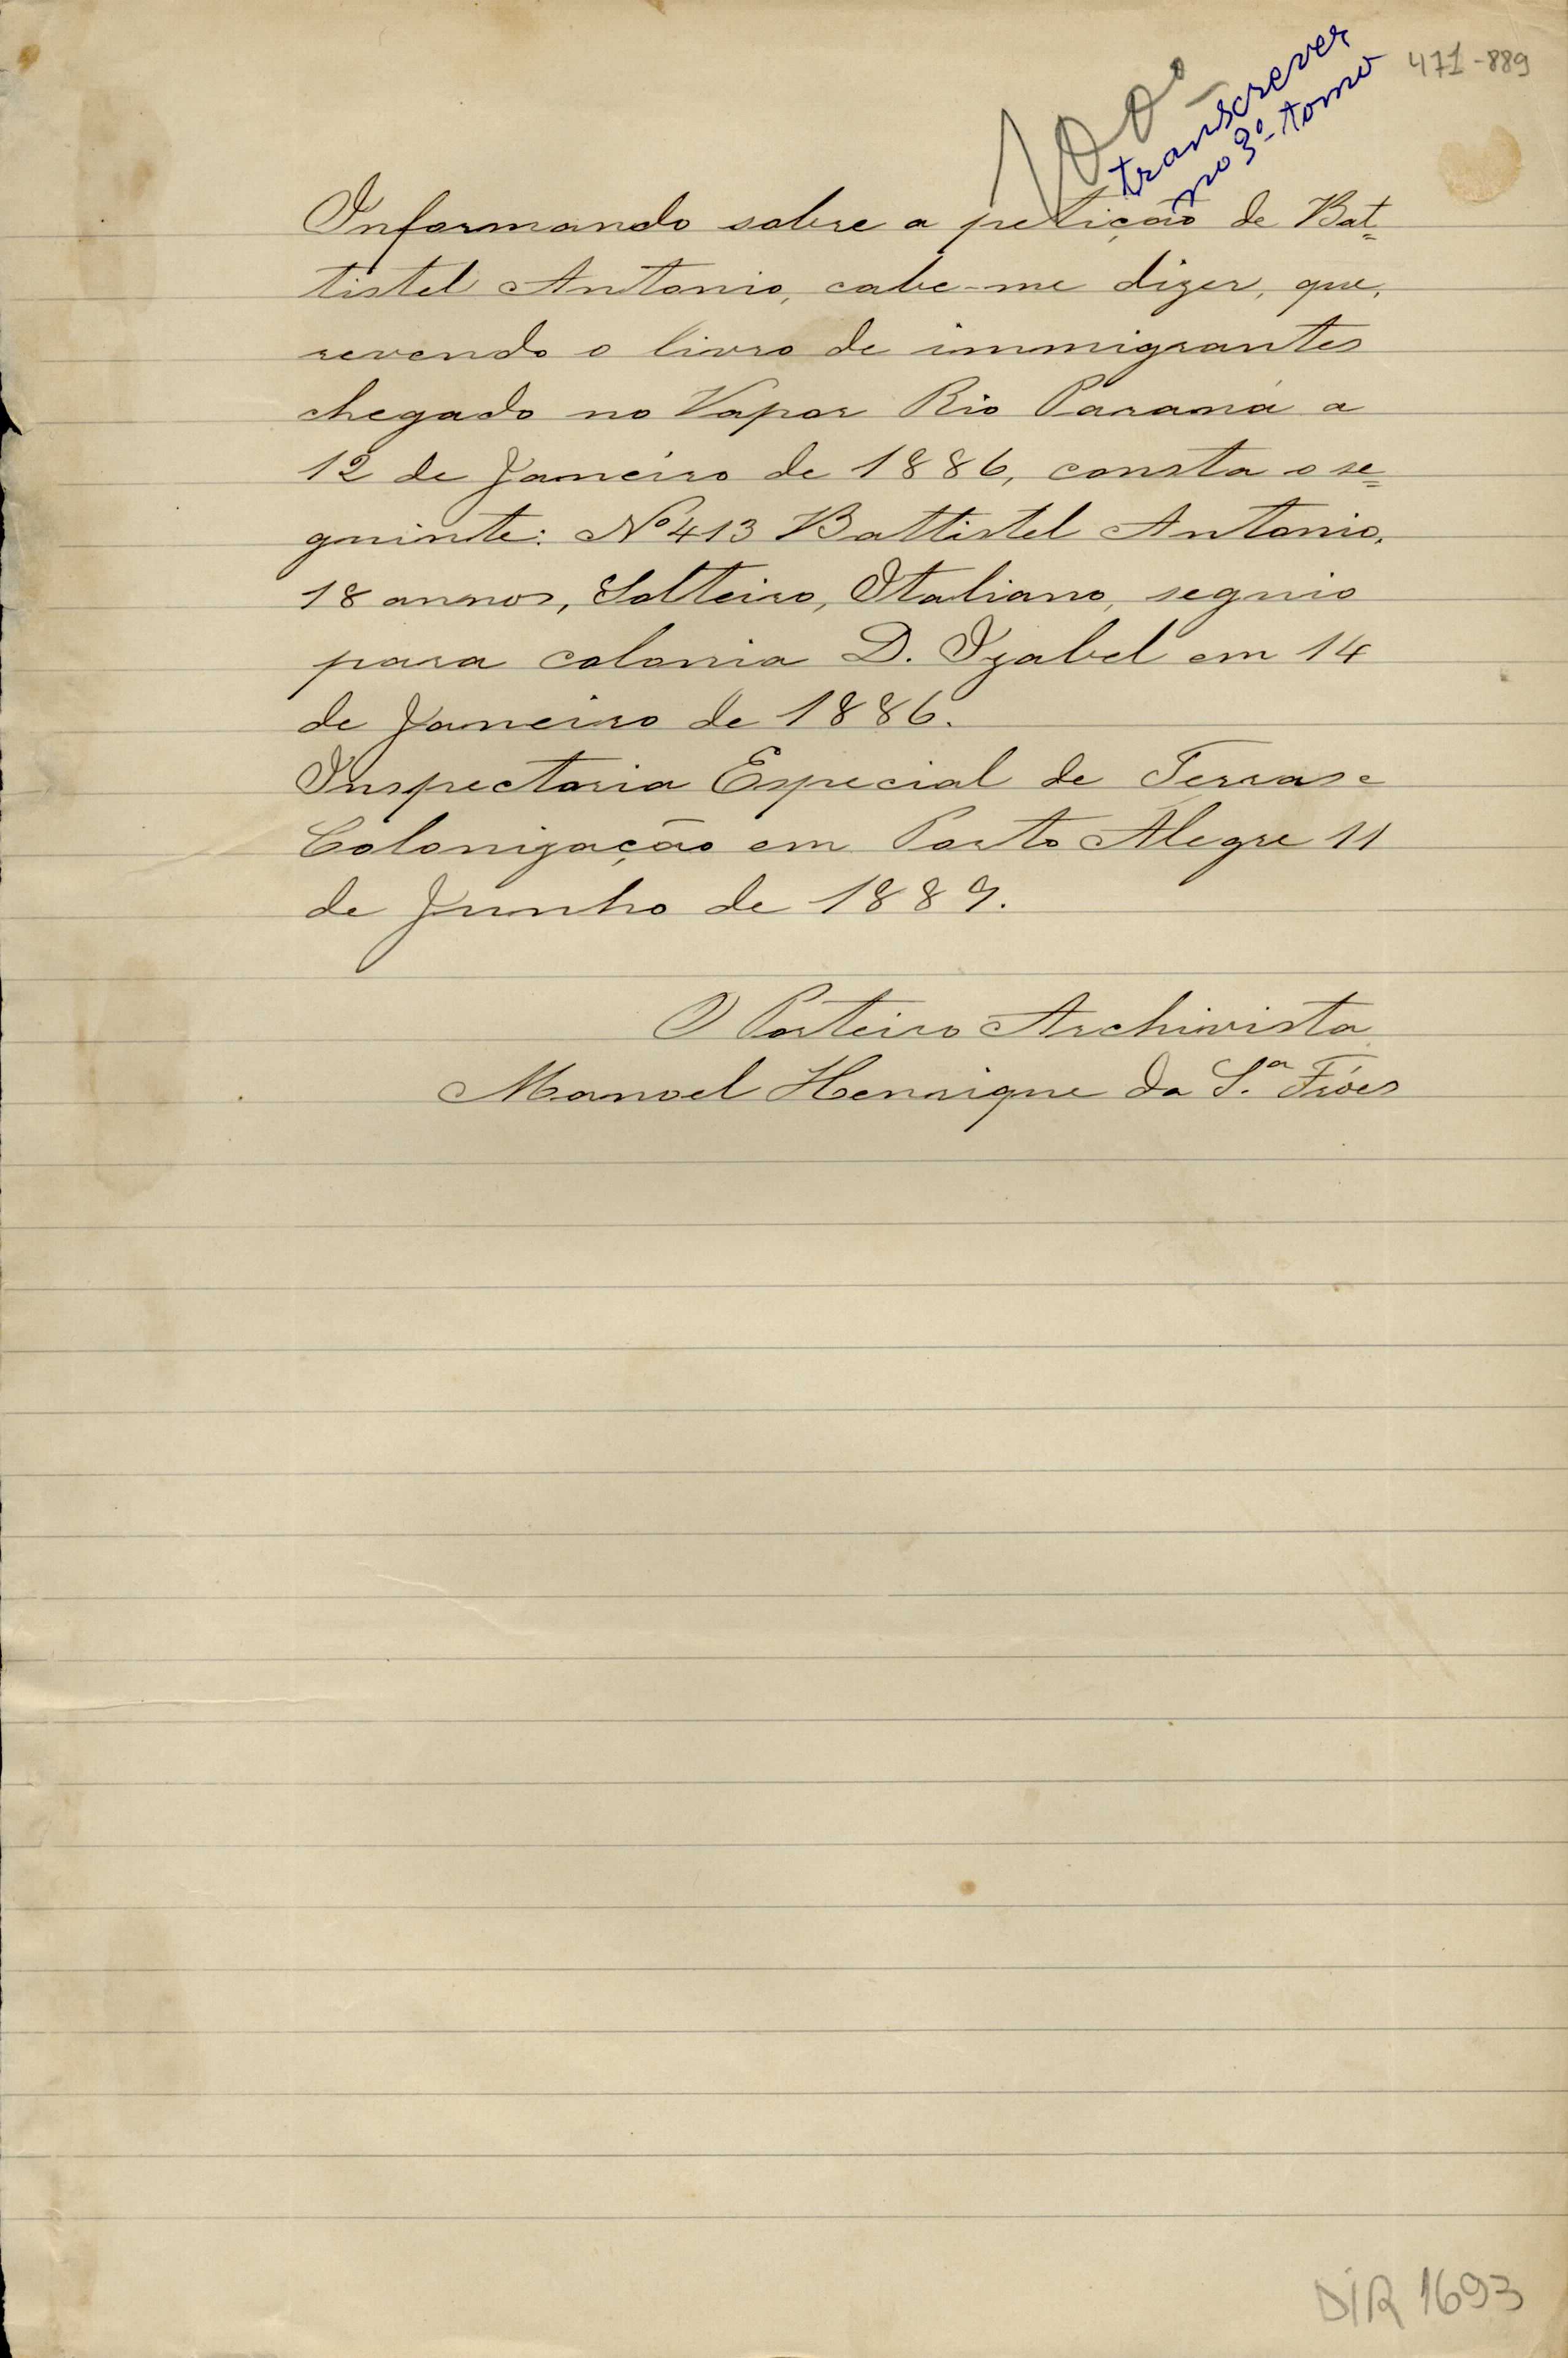 471-889
100º
transcrever
no 3º tomo
Informando sobre a petição de Bat=
tistel Antonio, cabe-me dizer, que,
revendo o livro de immigrantes
chegado no Vapor Rio Paraná a
12 de Janeiro de 1886, consta o se=
guinte: Nº 413 Battistel Antonio,
18 annos, Solteiro, Italiano, seguio
para colonia D. Izabel em 14
de Janeiro de 1886.
Inspectoria Especial de Terras e
Colonização em Porto Alegre 11
de Junho de 1889.
O Porteiro Archivista
Manoel Henrique da S.ª Fróes
DIR 1693